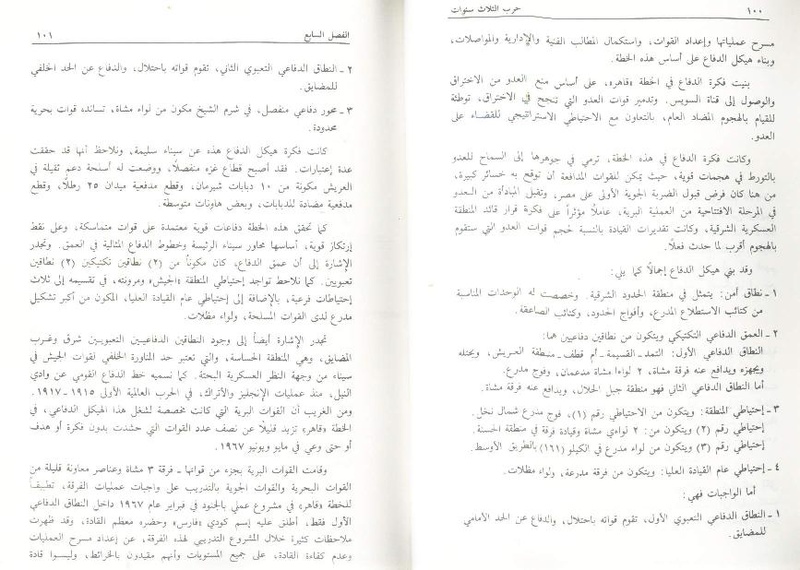 ١٠٠
حرب الثلاث سنوات
مسرح عملياتها وإعداد القوات، واستكمال المطالب الفنية والإدارية والمواصلات،
وبناء هيكل الدفاع على أساس هذه الخطة.
بنيت فكرة الدفاع في الخطة «قاهر»، على أساس منع العدو من الاختراق
والوصول إلى قناة السويس. وتدمير قوات العدو التي تنجح في الاختراق، توطئة
للقيام بالهجوم المضاد العام، بالتعاون مع الاحتياطي الاستراتيجي للقضاء على
العدو.
وكانت فكرة الدفاع في هذه الخطة، ترمي في جوهرها إلى السماح للعدو
بالتورط في هجمات قوية، حيث يمكن للقوات المدافعة أن توقع به خسائر كبيرة،
من هنا كان فرض قبول الضربة الجوية الأولى على مصر، وتقبل المبادأة من العدو
في المرحلة الافتتاحية من العملية البرية، عاملاً مؤثراً على فكرة قرار قائد المنطقة
العسكرية الشرقية، وكانت تقديرات القيادة بالنسبة لحجم قوات العدو التي ستقوم
بالهجوم أقرب لما حدث فعلاً.
وقد بني هيكل الدفاع إجمالاً كما يلي:
١ - نطاق أمن: يتمثل في منطقة الحدود الشرقية. وخصصت له الوحدات المناسبة
من كتائب الاستطلاع المدرع، وأفواج الحدود، وكتائب الصاعقة.
٢ - العمق الدفاعي التكتيكي ويتكون من نطاقين دفاعيين هما:
النطاق الدفاعي الأول: التمد - القسيمة - أم قطف - منطقة العريش، ويحتله
ويجهزه ويدافع عنه فرقة مشاة، ٢ لواء مشاة مدعمان، وفوج مدرع.
أما النطاق الدفاعي الثاني فهو منطقة جبل الحلال، ويدافع عنه فرقة مشاة.
٣ - إحتياطي المنطقة: ويتكون من الاحتياطي رقم (١)، فوج مدرع شمال نخل.
إحتياطي رقم (٢) ويتكون من: ٢ لواءي مشاة وقيادة فرقة في منطقة الحسنة.
إحتياطي رقم (٣) ويتكون من لواء مدرع في الكيلو (١٦١) بالطريق الأوسط.
٤ - إحتياطي عام القيادة العليا: ويتكون من فرقة مدرعة، ولواء مظلات.
أما الواجبات فهي:
١ - النطاق الدفاعي التعبوي الأول، تقوم قواته باحتلال، والدفاع عن الحد الأمامي
للمضايق.
الفصل السابع
١٠١
٢ - النطاق الدفاعي التعبوي الثاني، تقوم قواته باحتلال، والدفاع عن الحد الخلفي
للمضايق.
٣ - محور دفاعي منفصل، في شرم الشيخ مكون من لواء مشاة، تسانده قوات بحرية
محدودة.
كانت فكرة هيكل الدفاع هذه عن سيناء سليمة، ونلاحظ أنها قد حققت
عدة إعتبارات. فقد أصبح قطاع غزه منفصلاً، ووضعت له أسلحة دعم ثقيلة في
العريش مكونة من ١٠ دبابات شيرمان، وقطع مدفعية ميدان ٢٥ رطلاً، وقطع
مدفعية مضادة للدبابات، وبعض هاونات متوسطة.
كما تحقق هذه الخطة دفاعات قوية معتمدة على قوات متماسكة، وعلى نقط
إرتكاز قوية، أساسها محاور سيناء الرئيسة وخطوط الدفاع المثالية في العمق. وتجدر
الإشارة إلى أن عمق الدفاع، كان مكوناً من (٢) نطاقين تكتيكين (٢) نطاقين
تعبويين. كما نلاحظ تواجد إحتياطي المنطقة «الجيش» ومرونته، في تقسيمه إلى ثلاث
إحتياطات فرعية، بالإضافة إلى إحتياطي عام القيادة العليا، المكون من أكبر تشكيل
مدرع لدى القوات المسلحة، ولواء مظلات.
تجدر الإشارة أيضاً إلى وجود النطاقين الدفاعيين التعبويين شرق وغرب
المضايق، وهي المنطقة الحساسة، والتي تعتبر حد المناورة الخلفي لقوات الجيش في
سيناء من وجهة النظر العسكرية البحتة. كما نسميه خط الدفاع القومي عن وادي
النيل، منذ عمليات الإنجليز والأتراك، في الحرب العالمية الأولى ١٩١٥ - ١٩١٧.
ومن الغريب أن القوات البرية التي كانت مخصصة لشغل هذا الهيكل الدفاعي، في
الخطة «قاهر» تزيد قليلاً عن نصف عدد القوات التي حشدت بدون فكرة أو هدف
أو حتى وعي في مايو ويونيو ١٩٦٧.
وقامت القوات البرية بجزء من قواتها - فرقة ٣ مشاة وعناصر معاونة قليلة من
القوات البحرية والقوات الجوية بالتدريب على واجبات عمليات الفرقة، تطبيقاً
للخطة «قاهر» في مشروع عملي بالجنود في فبراير عام ١٩٦٧ داخل النطاق الدفاعي
الأول فقط، أطلق عليه إسم كودي «فارس» وحضره معظم القادة، وقد ظهرت
ملاحظات كثيرة خلال المشروع التدريبي لهذه الفرقة، عن إعداد مسرح العمليات
وعدم كفاءة القادة، على جميع المستويات وأنهم مقيدون بالخرائط، وليسوا قادة